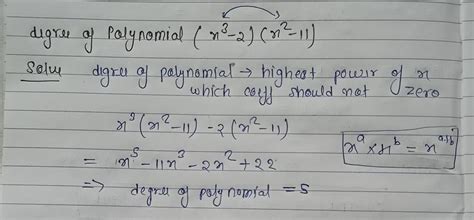 degree of Polynomial (x³-2)(x²-11)
Solve degree of polynomial → highest power of x
which coeff should not zero
x⁵(x²-11) -2(x²-11)
= x⁵-11x³-2x²+22
⇒ degree of polynomial = 5
xᵃ × xᵇ = xᵃ⁺ᵇ